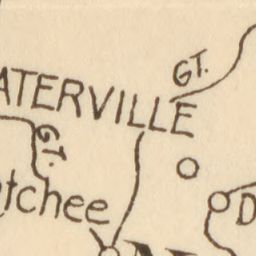 GT.
ATERVILLE
GT.
tchee
D